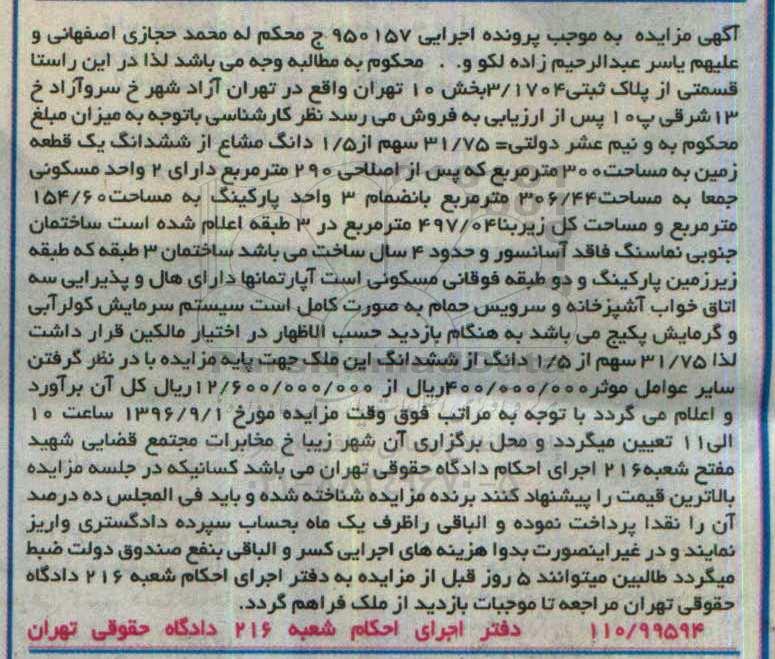 آگهی مزایده به موجب پرونده اجرایی ۹۵۰۱۵۷ ج محکم له محمد حجازی اصفهانی و
علیهم یاسر عبدالرحیم زاده لکو و. . محکوم به مطالبه وجه می باشد لذا در این راستا
قسمتی از پلاک ثبتی۳/۱۷۰۴بخش ۱۰ تهران واقع در تهران آزاد شهر خ سروآزاد خ
۱۳شرقی پ۱۰ پس از ارزیابی به فروش می رسد نظر کارشناسی باتوجه به میزان مبلغ
محکوم به و نیم عشر دولتی= ۳۱/۷۵ سهم از۱/۵ دانگ مشاع از ششدانگ یک قطعه
زمین به مساحت۳۰۰ مترمربع که پس از اصلاحی ۲۹۰ مترمربع دارای ۲ واحد مسکونی
جمعا به مساحت۳۰۶/۴۴ مترمربع بانضمام ۳ واحد پارکینگ به مساحت۱۵۴/۶۰
مترمربع و مساحت کل زیربنا۴۹۷/۰۴ مترمربع در ۳ طبقه اعلام شده است ساختمان
جنوبی نماسنگ فاقد آسانسور و حدود ۴ سال ساخت می باشد ساختمان ۳ طبقه که طبقه
زیرزمین پارکینگ و دو طبقه فوقانی مسکونی است آپارتمانها دارای هال و پذیرایی سه
اتاق خواب آشپزخانه و سرویس حمام به صورت کامل است سیستم سرمایش کولرآبی
و گرمایش پکیج می باشد به هنگام بازدید حسب الاظهار در اختیار مالکین قرار داشت
لذا ۳۱/۷۵ سهم از ۱/۵ دانگ از ششدانگ این ملک جهت پایه مزایده با در نظر گرفتن
سایر عوامل موثر۴۰۰/۰۰۰/۰۰۰ریال از ۱۲/۶۰۰/۰۰۰/۰۰۰ریال کل آن برآورد
و اعلام می گردد با توجه به مراتب فوق وقت مزایده مورخ ۱۳۹۶/۹/۱ ساعت ۱۰
الی۱۱ تعیین میگردد و محل برگزاری آن شهر زیبا خ مخابرات مجتمع قضایی شهید
مفتح شعبه۲۱۶ اجرای احکام دادگاه حقوقی تهران می باشد کسانیکه در جلسه مزایده
بالاترین قیمت را پیشنهاد کنند برنده مزایده شناخته شده و باید فی المجلس ده درصد
آن را نقدا پرداخت نموده و الباقی راظرف یک ماه بحساب سپرده دادگستری واریز
نمایند و در غیراینصورت بدوا هزینه های اجرایی کسر و الباقی بنفع صندوق دولت ضبط
میگردد طالبین میتوانند ۵ روز قبل از مزایده به دفتر اجرای احکام شعبه ۲۱۶ دادگاه
حقوقی تهران مراجعه تا موجبات بازدید از ملک فراهم گردد.
۱۱۰/۹۹۵۹۴ دفتر اجرای احکام شعبه ۲۱۶ دادگاه حقوقی تهران